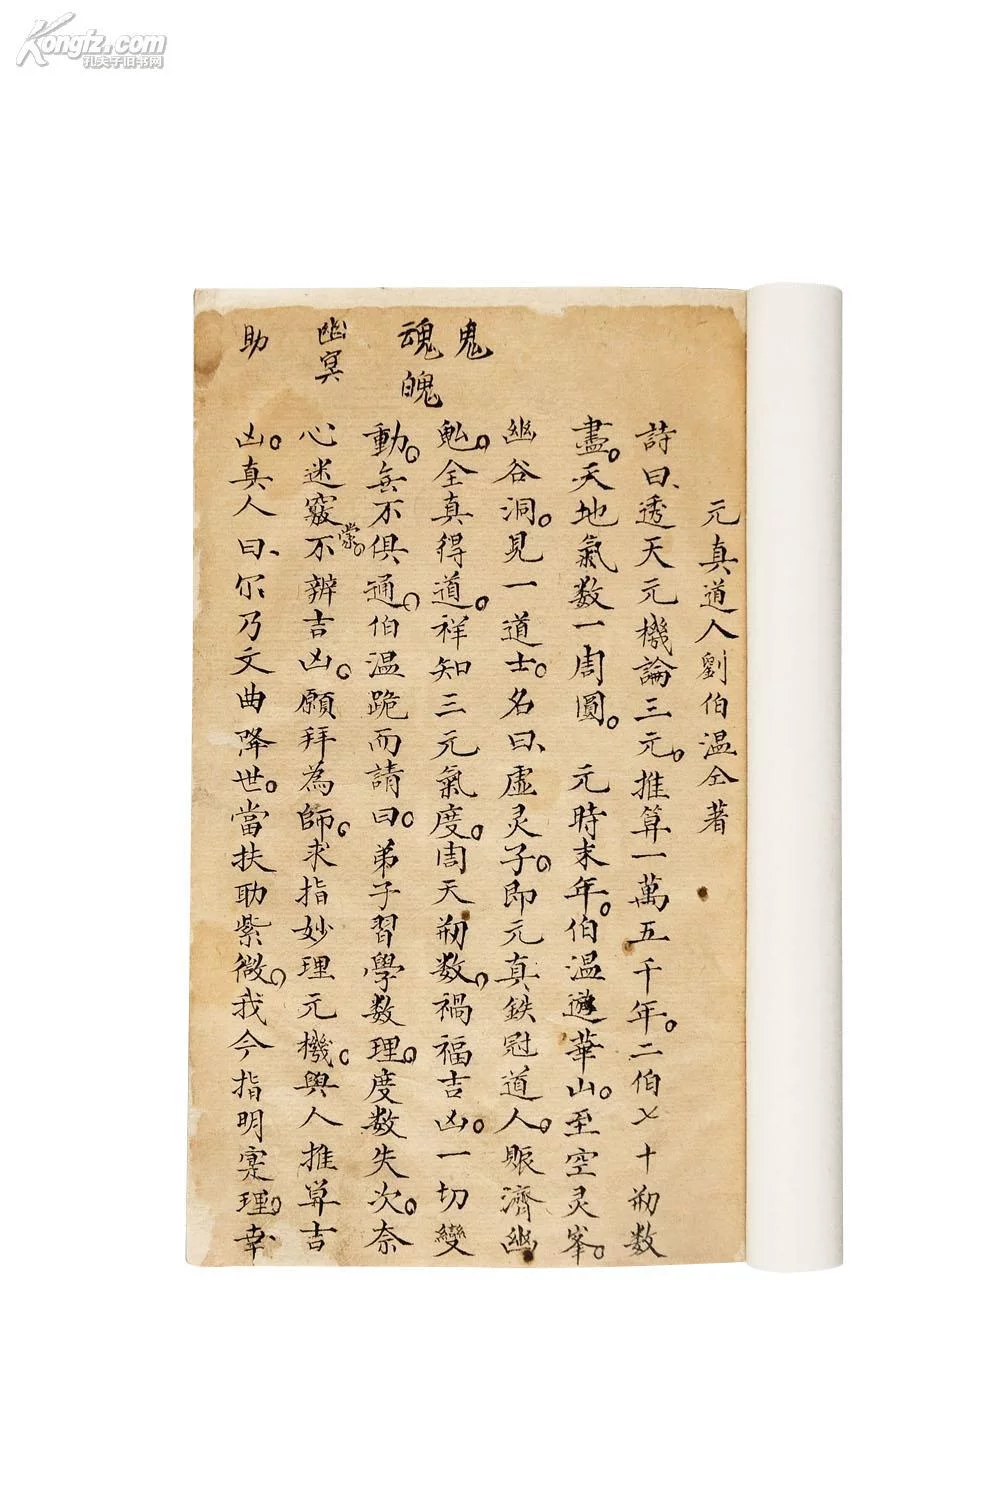 Kongfz.com
孔夫子旧书网
鬼
魂魄
幽冥
助
元真道人劉伯温仝著
詩曰、透天元機論三元。推算一萬五千年。二伯乂十刼数
盡。天地氣数一周圓。 元時末年。伯温遊華山。至空灵峯。
幽谷洞。見一道士。名曰、虚灵子。即元真鉄冠道人。賑濟幽
鬽。全真得道。祥知三元氣度。周天刼数。禍福吉凶。一切變
動。無不俱通。伯温跪而請曰。弟子習學数理。度数失次。奈
心迷竅蒙。不辨吉凶。願拜為師。求指妙理元機。與人推算吉
凶。真人曰、尔乃文曲降世。當扶助紫微。我今指明寔理。幸